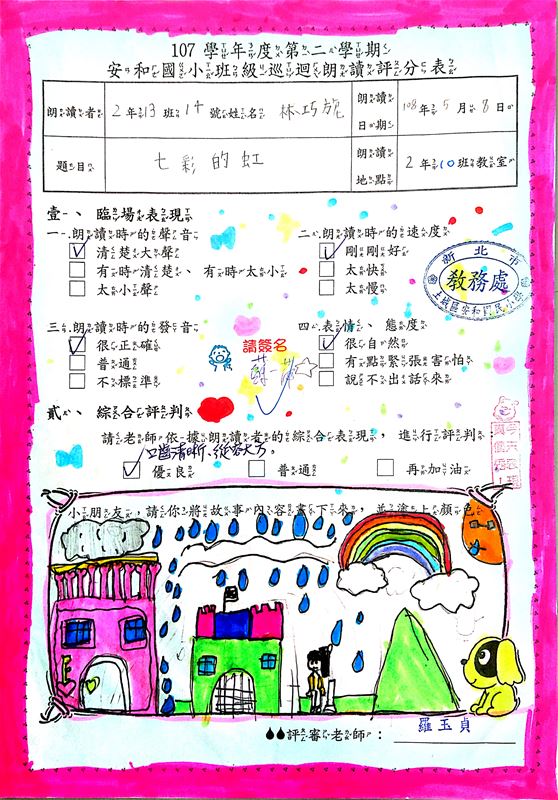 107 學年度第二學期
安和國小班級巡迴朗讀評分表
朗讀者 2年13班14號姓名 林巧 朗讀日期 108年5月8日
題目 七彩的虹 朗讀地點 2年10班教室
壹、臨場表現
一.朗讀時的聲音 二.朗讀時的速度
清楚大聲 剛剛好
有時清楚、有時太小 太快
太小聲 太慢
新北市
教務處
土城區安和國民小學
三.朗讀時的發音 四.表情、態度
很正確 請簽名 很自然
普通 有點緊張害怕
不標準 說不出話來
貳、綜合評判
請老師依據朗讀者的綜合表現，進行評判
口齒清晰、從容大方。
優良 普通 再加油
小朋友，請你將故事內容畫下來，並塗上顏色
評審老師：羅玉貞